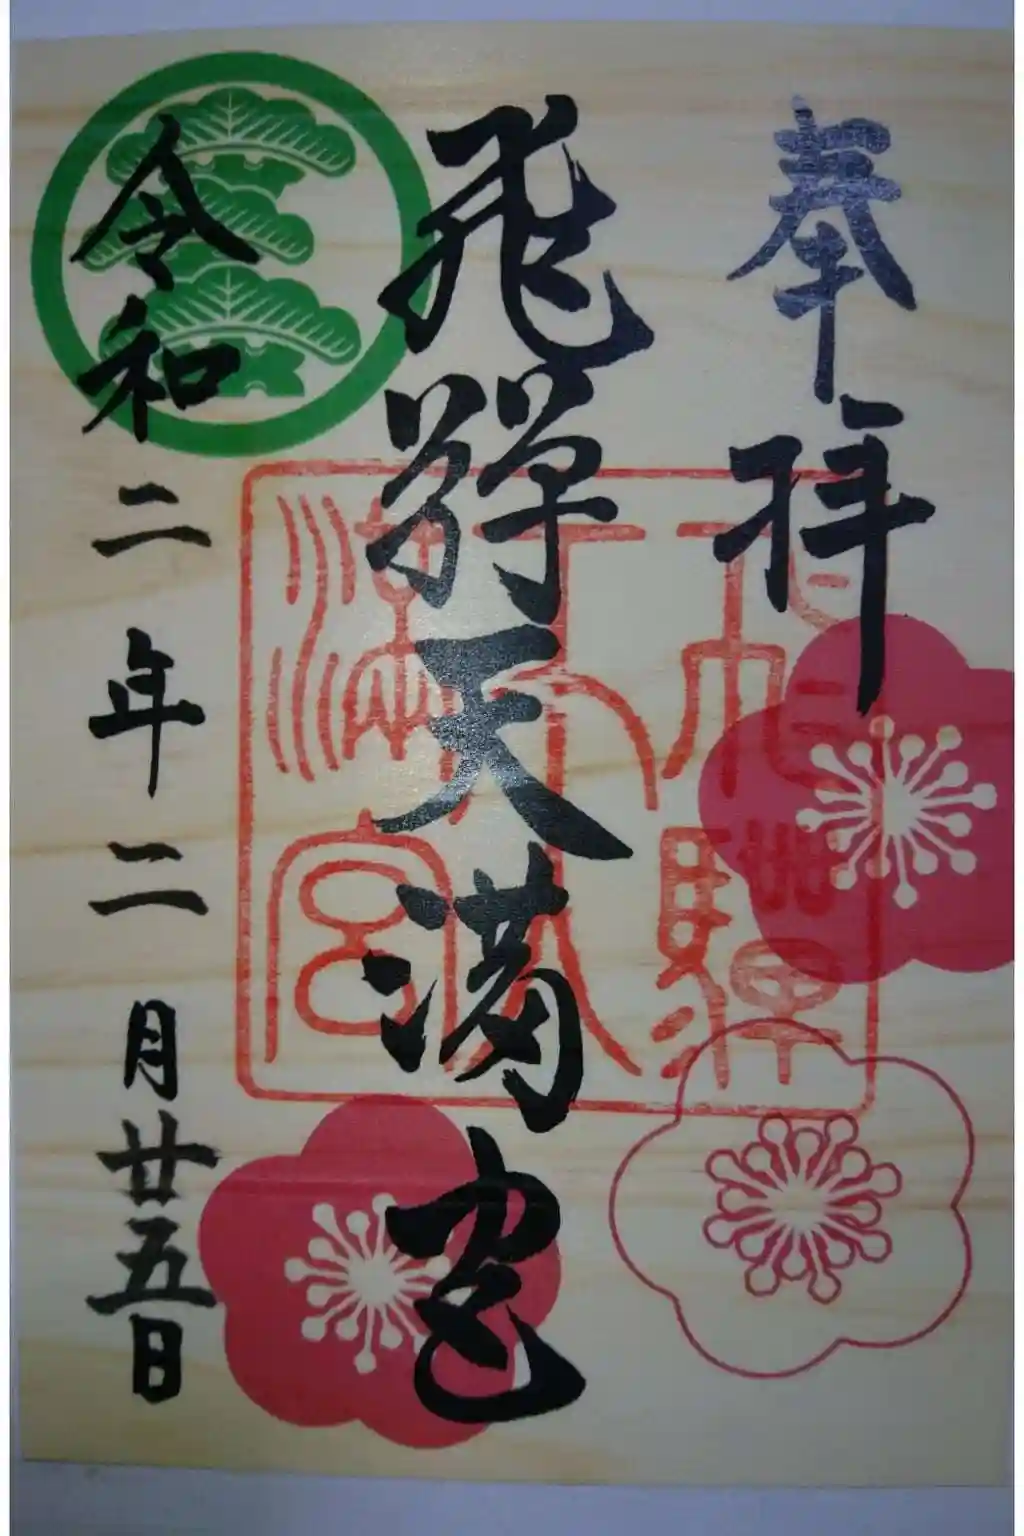 奉拝
飛騨天満宮
令和二年二月廿五日
飛驒天満宮